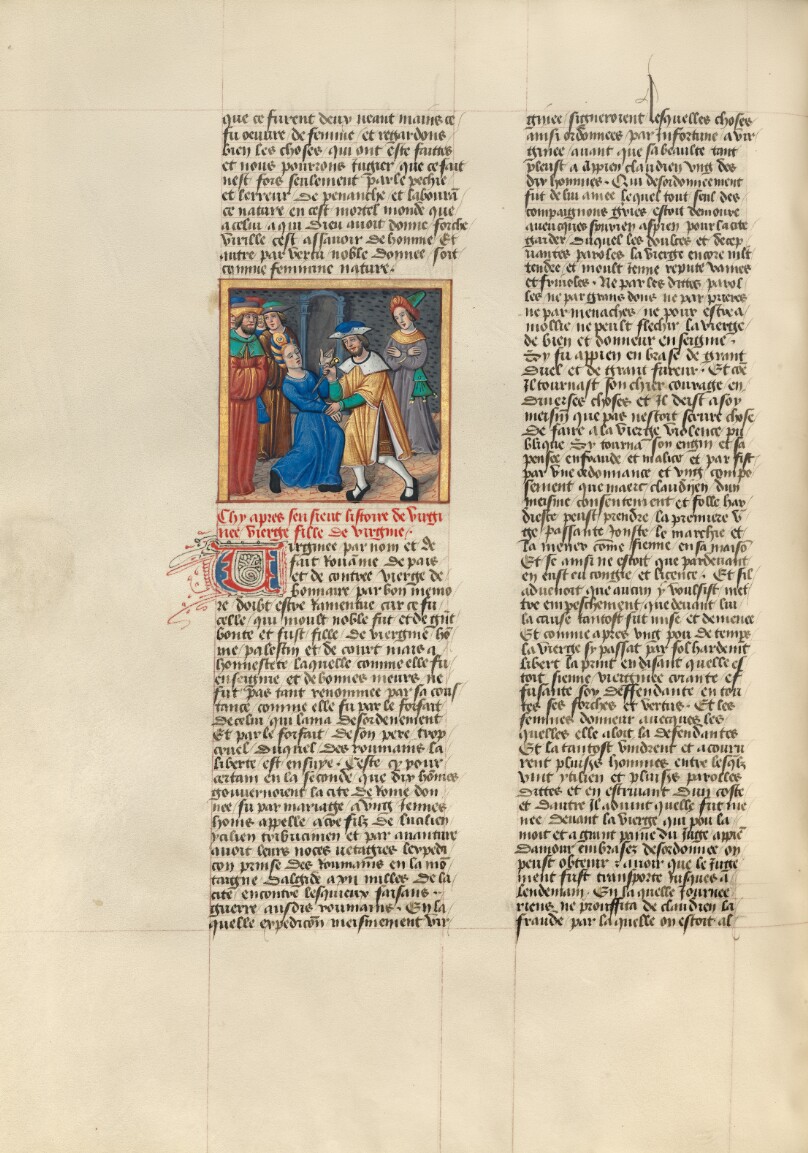 que ce furent deux neant mains ce
fu oeuure de femme et regardons
bien les choses qui ont este faittes
et nous pourrons iugier que ce fait
nest fors seulement par le pechie
et lerreur de penanche et labourāt
ce nature en cest mortel monde que
a celui a qui dieu auoit donne forche
virille cest assauoir de homme Et
autre par vertu noble donnee soit
comme feminine nature.
Chy apres sensieut listoire de virgi
nee vierge fille de virgine.
Virginee par nom et de
fait Rouāme de pais
et de contree vierge de
bonnaire par bon memo
re doibt estre ramentue car ce fu
celle qui moult noble fut et de grāt
bonte et fust fille de viergine hō
me palestin et de court mais a
honnestete laquelle comme elle fu
enseigine et de bonnes meurs ne
fut pas tant renommee par sa cons
tance comme elle fu par le forfait
de celui qui lama desordeneement
Et par le forfait de son pere trop
cruel duquel des roumains la
liberte est ensuye. Ceste cy pour
certain en la seconde que dix hōmes
gouuernoient la cite de Rome don
nee fu par mariage a vng Jennes
homs appelle acre filz de lucilien
ycilien tribucinien et par auanture
auoit leurs noces retagies lexpedi
con prinse des Roumains en la mō
taigne dalgide a xii milles de la
cite encontre lesquieux faisans
guerre ausdis roumains. En la
quelle expedicōn meismement vir
ginee signeroient lesquelles choses
ainsi ordonnees par Infortune a vir
ginee auant que sa beaulte tant
pleust a appien claudien vng des
dix hommes. Qui desordonneement
fut de lui amee lequel tout seul des
compaignons gries estoit demoure
auencques spurien aspien pour la cite
garder duquel les doulces et decep
uantes paroles la vierge encore nilt
tendre et moult Jenne repute vaines
et friuoles. Ne par les dittes parol
les ne par grans dons ne par prieres
ne par menaches ne pour estre a
mollie ne peult flechir la vierge
de bien et donneur enseigine.
Sy fu appien en brase de grant
duel et de grant fureur. Et cōe
Il tournast son chier courage en
diuerses choses et Il deist a soy
meism que pas nestoit seeure chose
de faire a la vierge violence pu
blique Sy tourna son engin et sa
pensee en fraude et malice et par fist
par vne ordonnance et vng compo
sement que marc claudyen dun
meisme consentement et folle har
diesse peust prendre la premiere v
ge passante Jouste le marchie et
la mener come sienne en sa maisō
Et se ainsi ne estoit que par deuant
en eust eu congie et licence. Et sil
aduenoit que aucun y voulsist met
tre empeschement que deuant lui
la cause tantost fut mise et demenee
Et comme apres vng pou de temps
la vierge sy passat par fol hardement
libert la print en disant quelle es
toit sienne vierginee criante et
fusante soy deffendante en tou
tes ses forches et vertus. Et les
femmes donneur auecques les
quelles elle aloit la defendantes
Et la tantost vindrent et acouru
rent pluisrs hommes entre lesqlz
vint ytilien et pluisrs parolles
dittes et en estriuant dun coste
et dautre Il aduint quelle fut me
nee deuant la vierge qui pou la
moit et a grant paine du Juge appiē
damour embrasez desordonnee on
peust obtenir & auoir que le Juge
ment fust transporte Jusques a
lendemain. En laquelle Journee
riens ne prouffita de claudien la
fraude par laquelle on estoit al